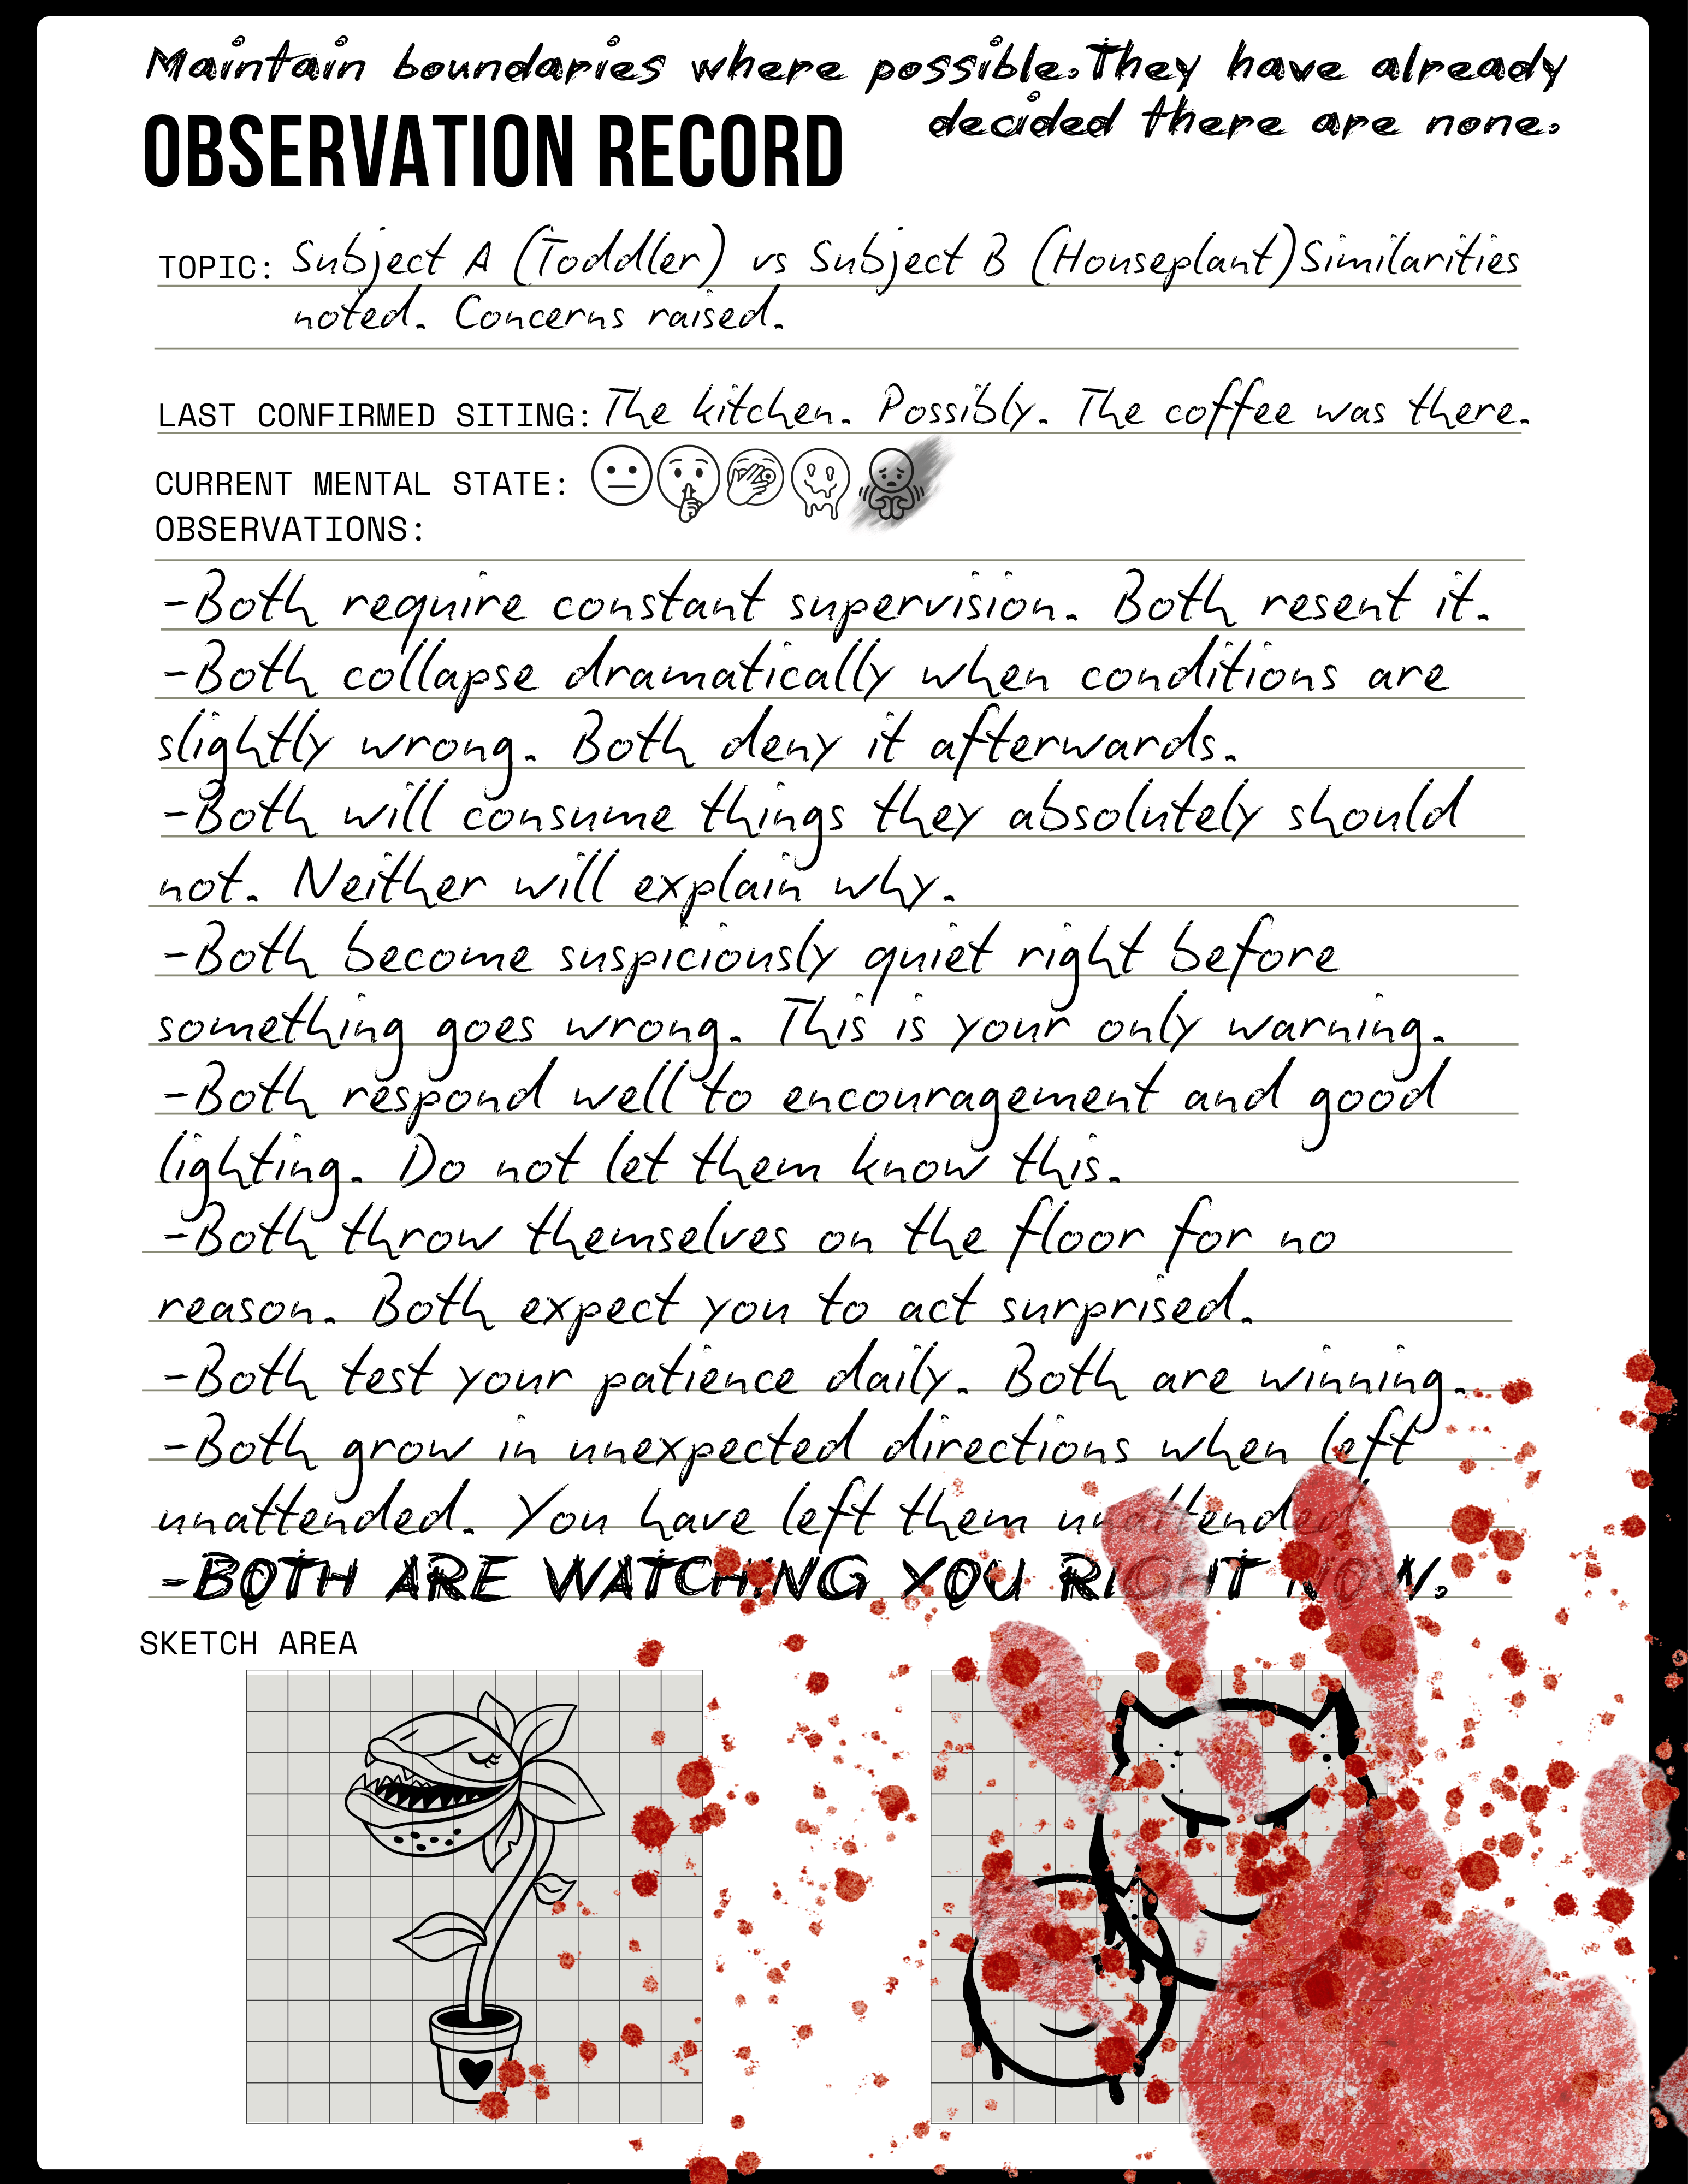 Maintain boundaries where possible. They have already
decided there are none.
OBSERVATION RECORD
TOPIC: Subject A (Toddler) vs Subject B (Houseplant) Similarities
noted. Concerns raised.
LAST CONFIRMED SITING: The kitchen. Possibly. The coffee was there.
CURRENT MENTAL STATE:
OBSERVATIONS:
-Both require constant supervision. Both resent it.
-Both collapse dramatically when conditions are
slightly wrong. Both deny it afterwards.
-Both will consume things they absolutely should
not. Neither will explain why.
-Both become suspiciously quiet right before
something goes wrong. This is your only warning.
-Both respond well to encouragement and good
lighting. Do not let them know this.
-Both throw themselves on the floor for no
reason. Both expect you to act surprised.
-Both test your patience daily. Both are winning.
-Both grow in unexpected directions when left
unattended. You have left them unattended.
-BOTH ARE WATCHING YOU RIGHT NOW.
SKETCH AREA